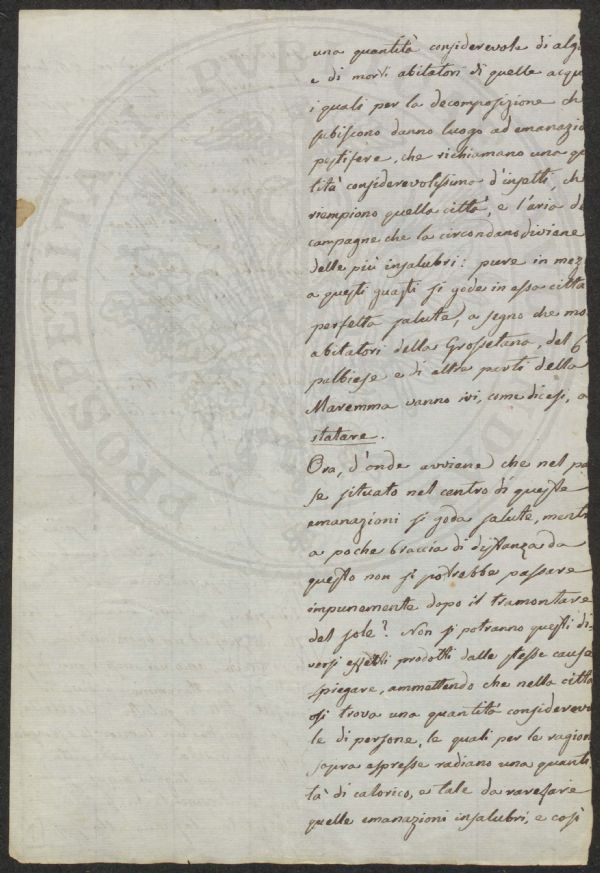 una quantità considerevole di alg
e di morti abitatori di quelle acqu
i quali per la decomposizione ch
subiscono danno luogo ad emanazio
pestifere, che richiamano una qu
tità considerevolissima d'insetti, ch
riempiono quella città, e l'aria de
campagne che la circondano diviene
delle più insalubri: pure in mez
a questi guasti si gode in essa città
perfetta salute, a segno che mo
abitatori della Grossetana, del
palbiese e di altre parti della
Maremma vanno ivi, come dicesi, a
statare.
Ora, d'onde avviene che nel pa
se situato nel centro di queste
emanazioni si goda salute, mentr
a poche braccia di distanza da
questo non si potrebbe passare
impunemente dopo il tramontare
del sole? Non si potranno questi di-
versi effetti prodotti dalle stesse cause
spiegare, ammettendo che nella città
si trova una quantità considerevo
le di persone, le quali per le ragion
sopra espresse radiano una quanti
tà di calorico, e tale da rarefare
quelle emanazioni insalubri, e così
PROSPERITATI PVBLICAE